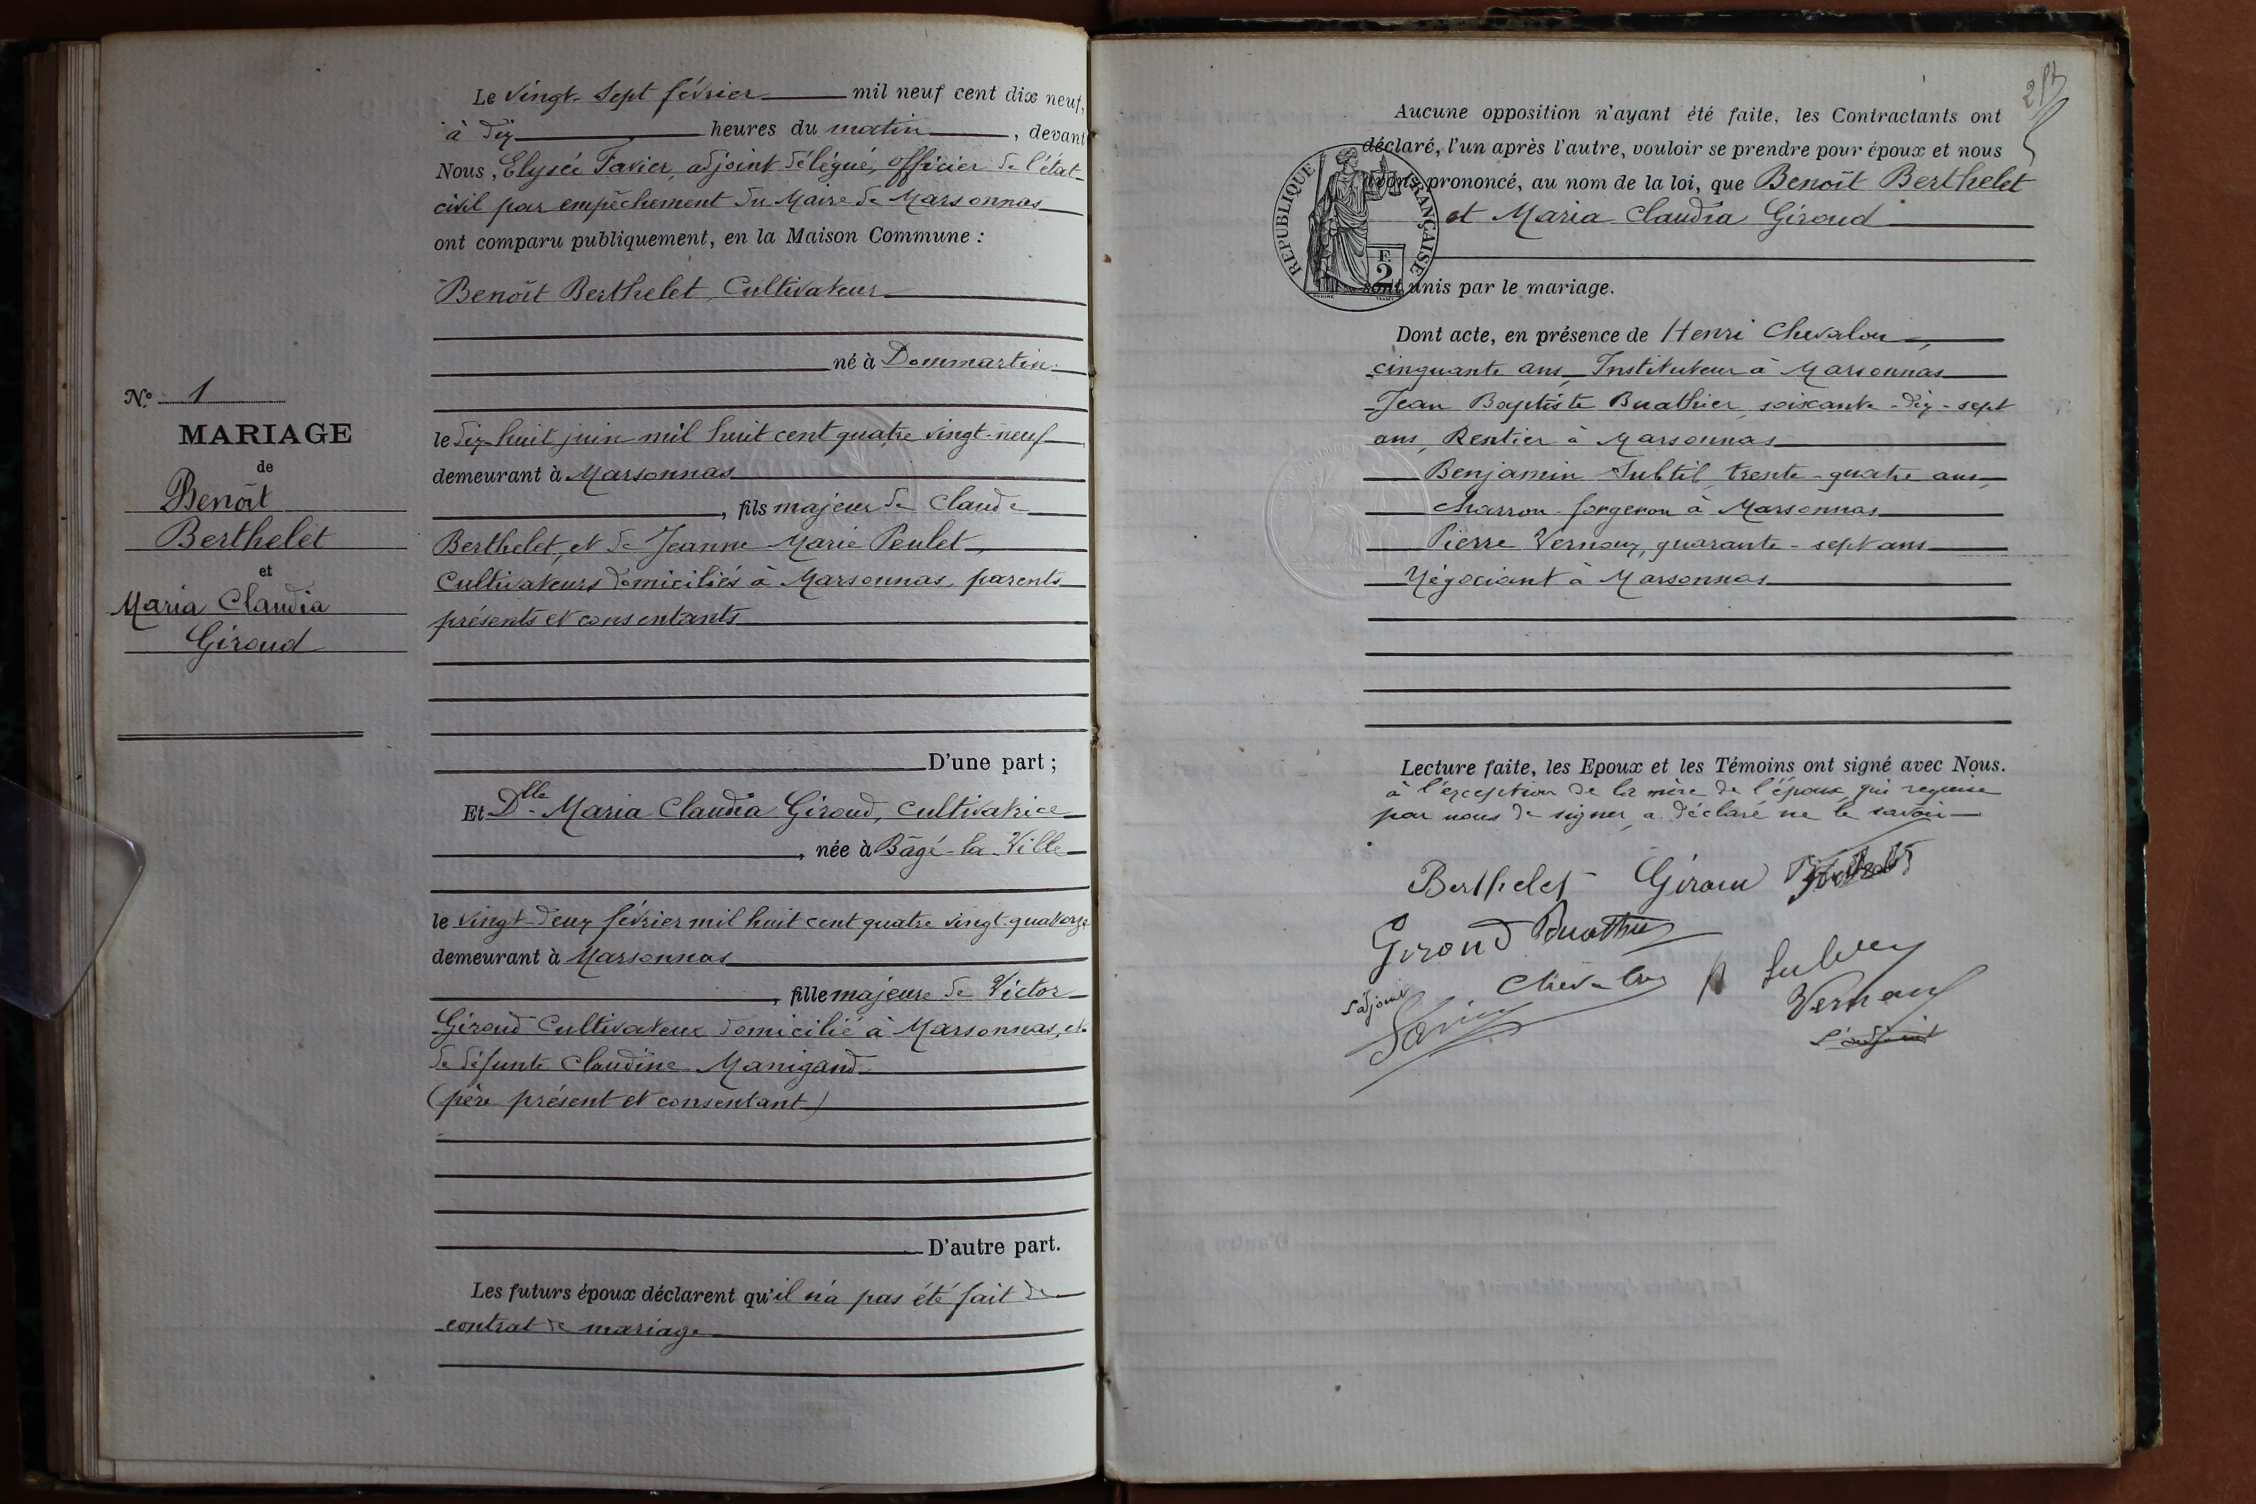 Le vingt-sept février mil neuf cent dix neuf,
à dix heures du matin, devant
Nous, Elysée Favier, adjoint délégué, officier de l'état-
civil par empêchement du Maire de Marsonnas
ont comparu publiquement, en la Maison Commune :
Benoît Berthelet, Cultivateur
né à Dommartin
le dix-huit juin mil huit cent quatre vingt-neuf
demeurant à Marsonnas
, fils majeur de Claude
Berthelet, et de Jeanne Marie Peulet,
Cultivateurs domiciliés à Marsonnas, parents
présents et consentants
D'une part ;
Et Dlle Maria Claudia Giroud, cultivatrice
, née à Bâgé-la-Ville
le vingt-deux février mil huit cent quatre vingt-quatorze
demeurant à Marsonnas
, fille majeure de Victor
Giroud Cultivateur domicilié à Marsonnas, et
de défunte Claudine Manigand
(père présent et consentant)
D'autre part.
Les futurs époux déclarent qu'il n'a pas été fait de
contrat de mariage
N° 1
MARIAGE
de
Benoît
Berthelet
et
Maria Claudia
Giroud
Aucune opposition n'ayant été faite, les Contractants ont
déclaré, l'un après l'autre, vouloir se prendre pour époux et nous
avons prononcé, au nom de la loi, que Benoît Berthelet
et Maria Claudia Giroud
sont unis par le mariage.
RÉPUBLIQUE FRANÇAISE
F.
2
Dont acte, en présence de Henri Chevalon,
cinquante ans, Instituteur à Marsonnas
Jean Baptiste Buathier, soixante-dix-sept
ans, Rentier à Marsonnas
Benjamin Subtil, trente-quatre ans,
charron-forgeron à Marsonnas
Pierre Vernoux, quarante-sept ans
Négociant à Marsonnas
Lecture faite, les Epoux et les Témoins ont signé avec Nous.
à l'exception de la mère de l'époux, qui requise
par nous de signer, a déclaré ne le savoir
Berthelet Giroud
Giroud Buathier
l'adjoint
Favier
Vernoux
l'adjoint